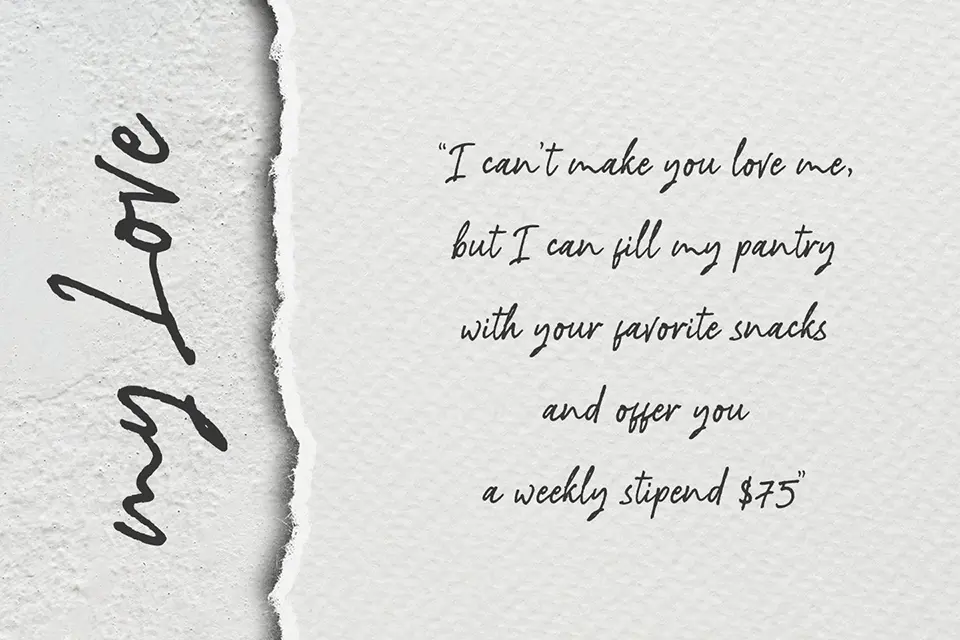 my Love
“I can't make you love me,
but I can fill my pantry
with your favorite snacks
and offer you
a weekly stipend $75”